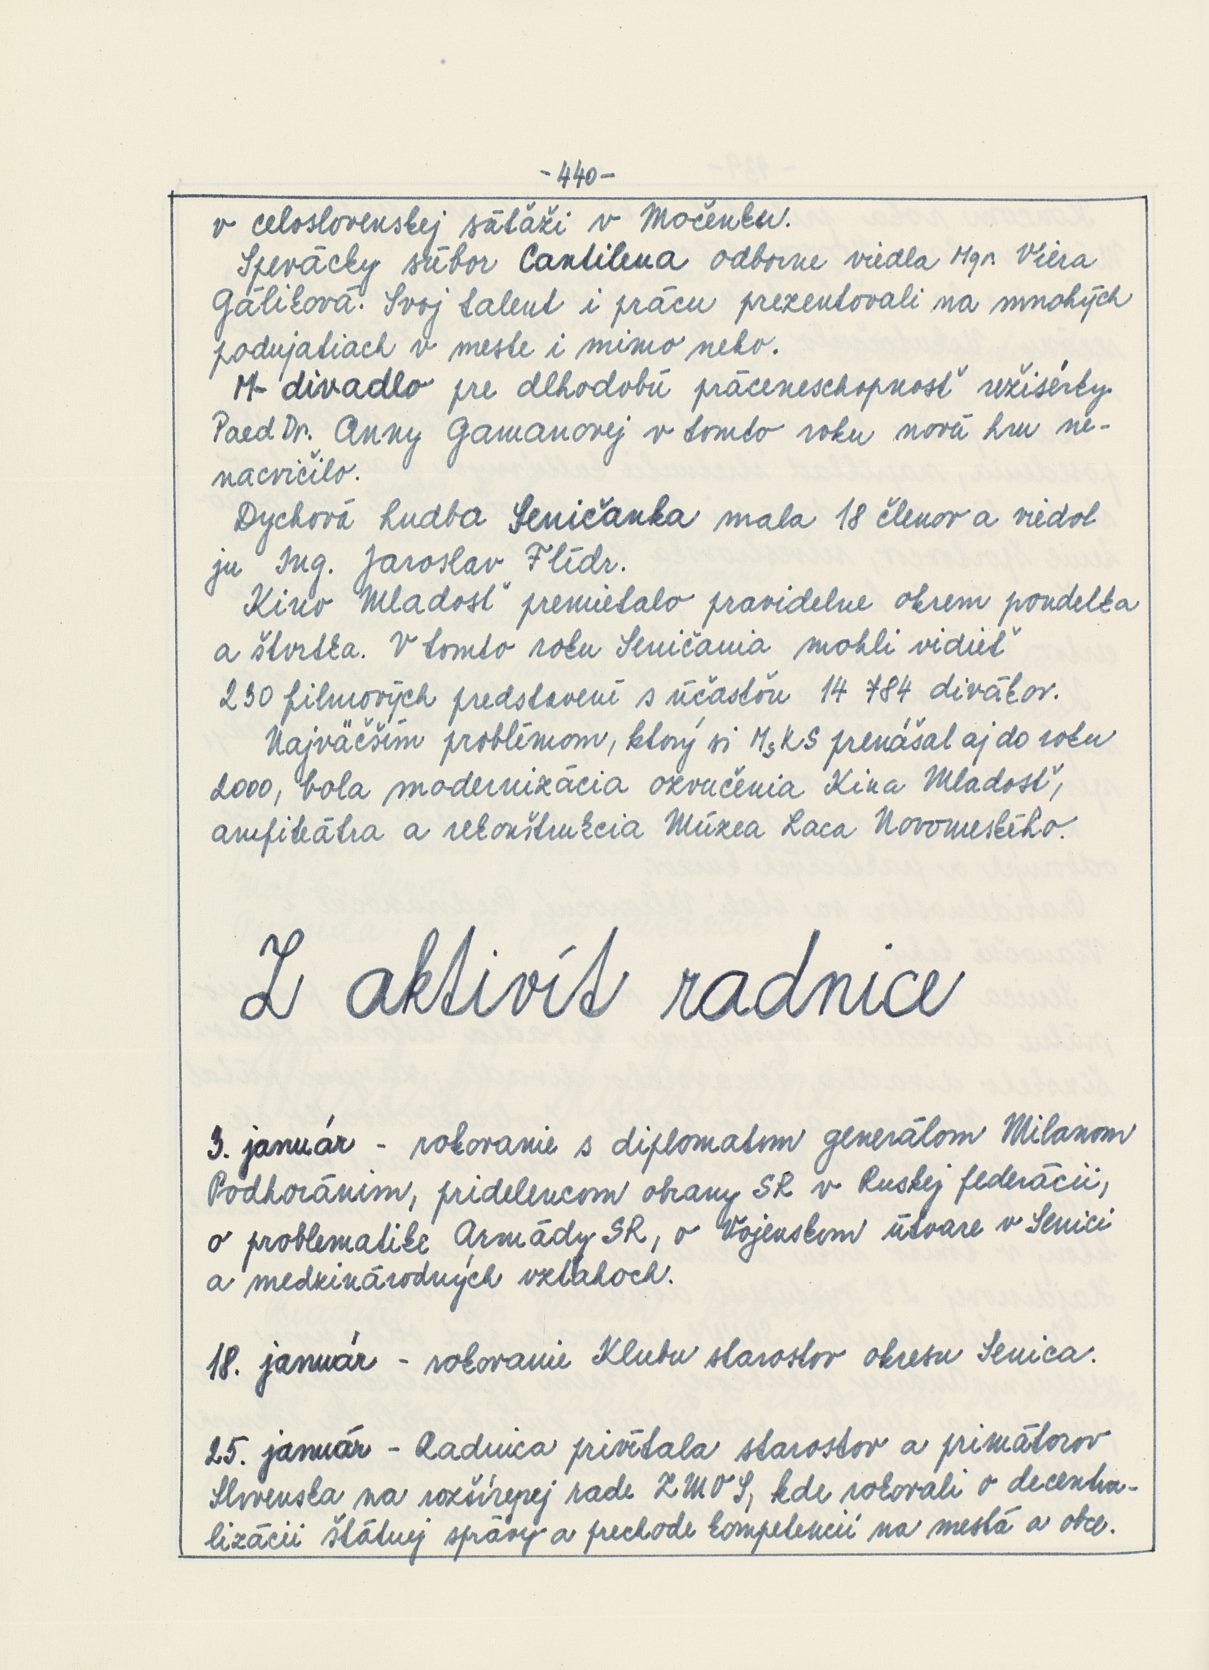 -440-
v celoslovenskej súťaži v Močenku.
Spevácky súbor Cantilena odborne viedla Mgr. Viera
Gáliková. Svoj talent i prácu prezentovali na mnohých
podujatiach v meste i mimo neho.
M- divadlo pre dlhodobú práceneschopnosť režisérky
Paed Dr. Anny Gamanovej v tomto roku novú hru ne-
nacvičilo.
Dychová hudba Seničanka mala 18 členov a viedol
ju Ing. Jaroslav Flídr.
Kino Mladosť premietalo pravidelne okrem pondelka
a štvrtka. V tomto roku Seničania mohli vidieť
230 filmových predstavení s účasťou 14 784 divákov.
Najväčším problémom, ktorý si MsKS prenášal aj do roku
2000, bola modernizácia ozvučenia Kina Mladosť,
amfiteátra a rekonštrukcia Múzea Laca Novomeského.
Z aktivít radnice
3. január - rokovanie s diplomatom generálom Milanom
Podhoránim, pridelencom obrany SR v Ruskej federácii,
o problematike Armády SR, o Vojenskom útvare v Senici
a medzinárodných vzťahoch.
18. január - rokovanie Klubu starostov okresu Senica.
25. január - Radnica privítala starostov a primátorov
Slovenska na rozšírenej rade ZMOS, kde rokovali o decentra-
lizácii štátnej správy a prechode kompetencií na mestá a obce.